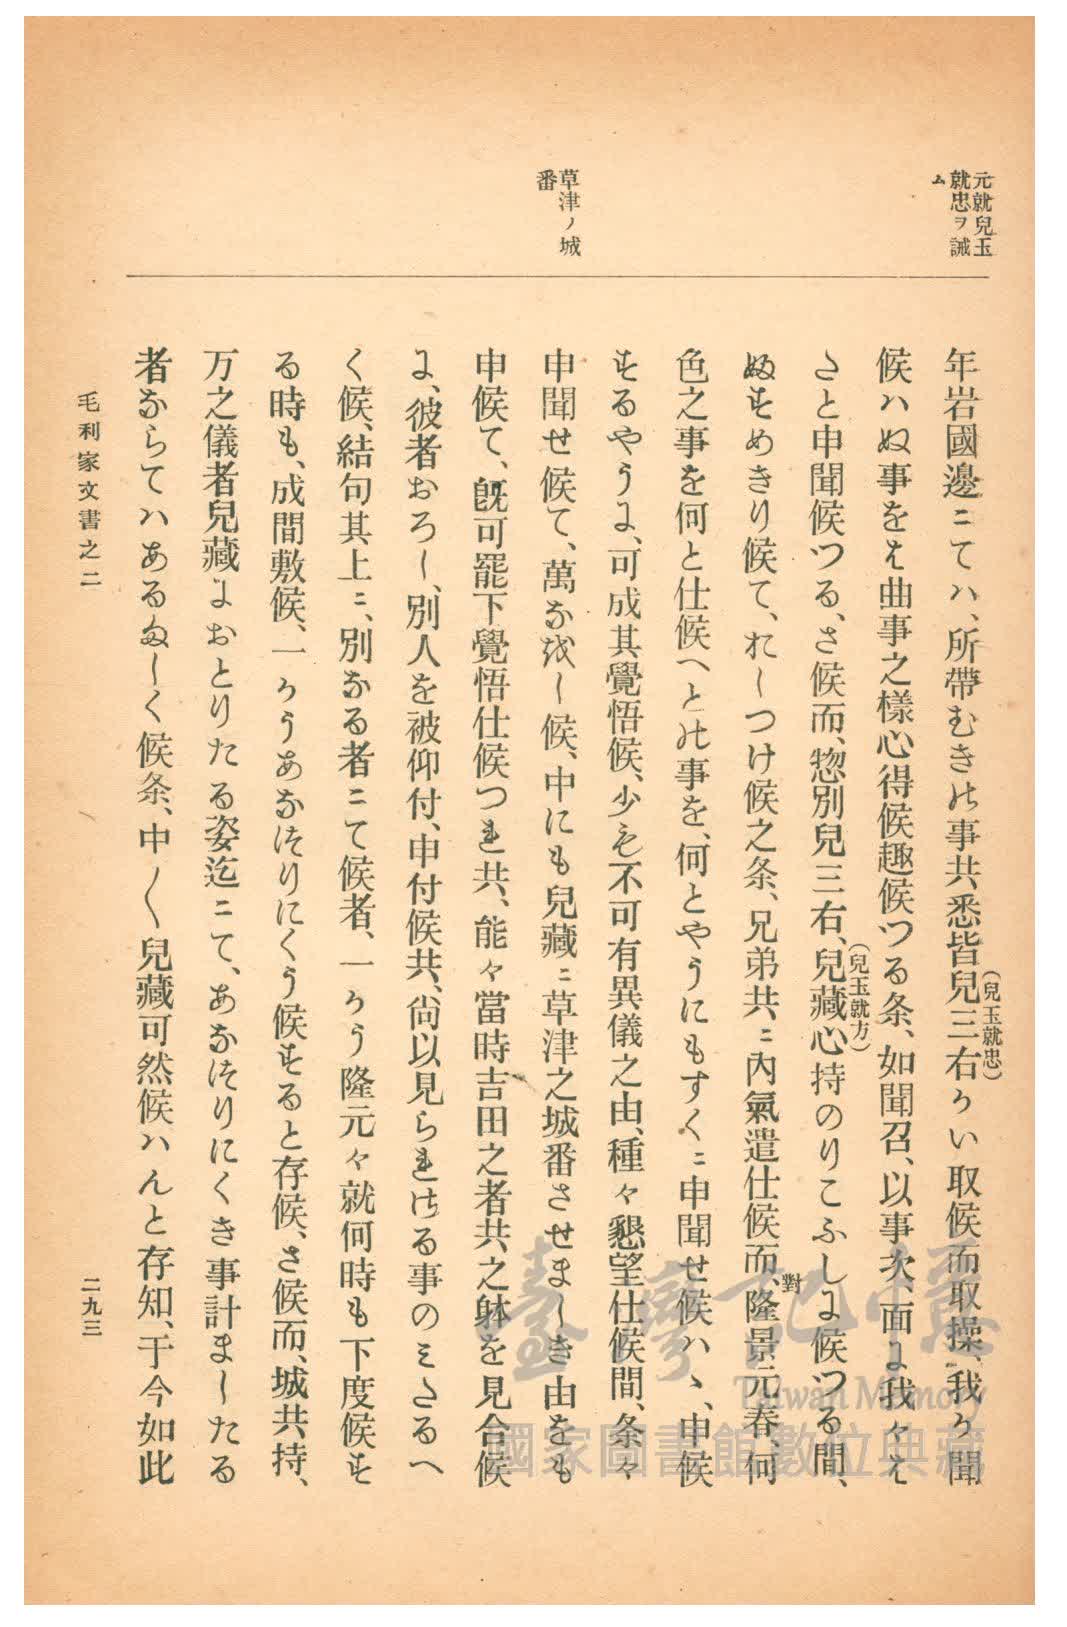 元就兒玉
就忠ヲ誡
ム
草津ノ城
番
年岩國邊ニてハ、所帶むきの事共、悉皆兒三右かい取候而取操、我か聞
(兒玉就忠)
候ハぬ事をは曲事之樣心得候趣候つる条、如聞召、以事次、面よ我々え
さと申聞候つる、さ候而、惣別兒三右、兒藏心持のりこふしよ候つる間、
(兒玉就方)
ぬすめきり候て、れしつけ候之条、兄弟共ニ內氣遣仕候而、隆景元春、何
對
色之事を何と仕候へとの事を、何とやうにもすくニ申聞せ候ハヽ、申候
するやうよ、可成其覺悟候、少も不可有異儀之由、種々懇望仕候間、条々
申聞せ候て、萬なをし候、中にも兒藏ニ草津之城番させましき由をも
申候て、既可罷下覺悟仕候つれ共、能々當時吉田之者共之躰を見合候
よ、彼者おろし、別人を被仰付、申付候共、尙以見られける事のミさるへ
く候、結句其上ニ、別なる者ニて候者、一かう隆元々就何時も下度候す
る時も、成間敷候、一かうあなつりにくう候すると存候、さ候而、城共持、
万之儀者兒藏よおとりたる姿迄ニて、あなつりにくき事計ましたる
者ならてハあるましく候条、中〱兒藏可然候ハんと存知、于今如此
毛利家文書之二
二九三
臺灣記憶
Taiwan Memory
國家圖書館數位典藏